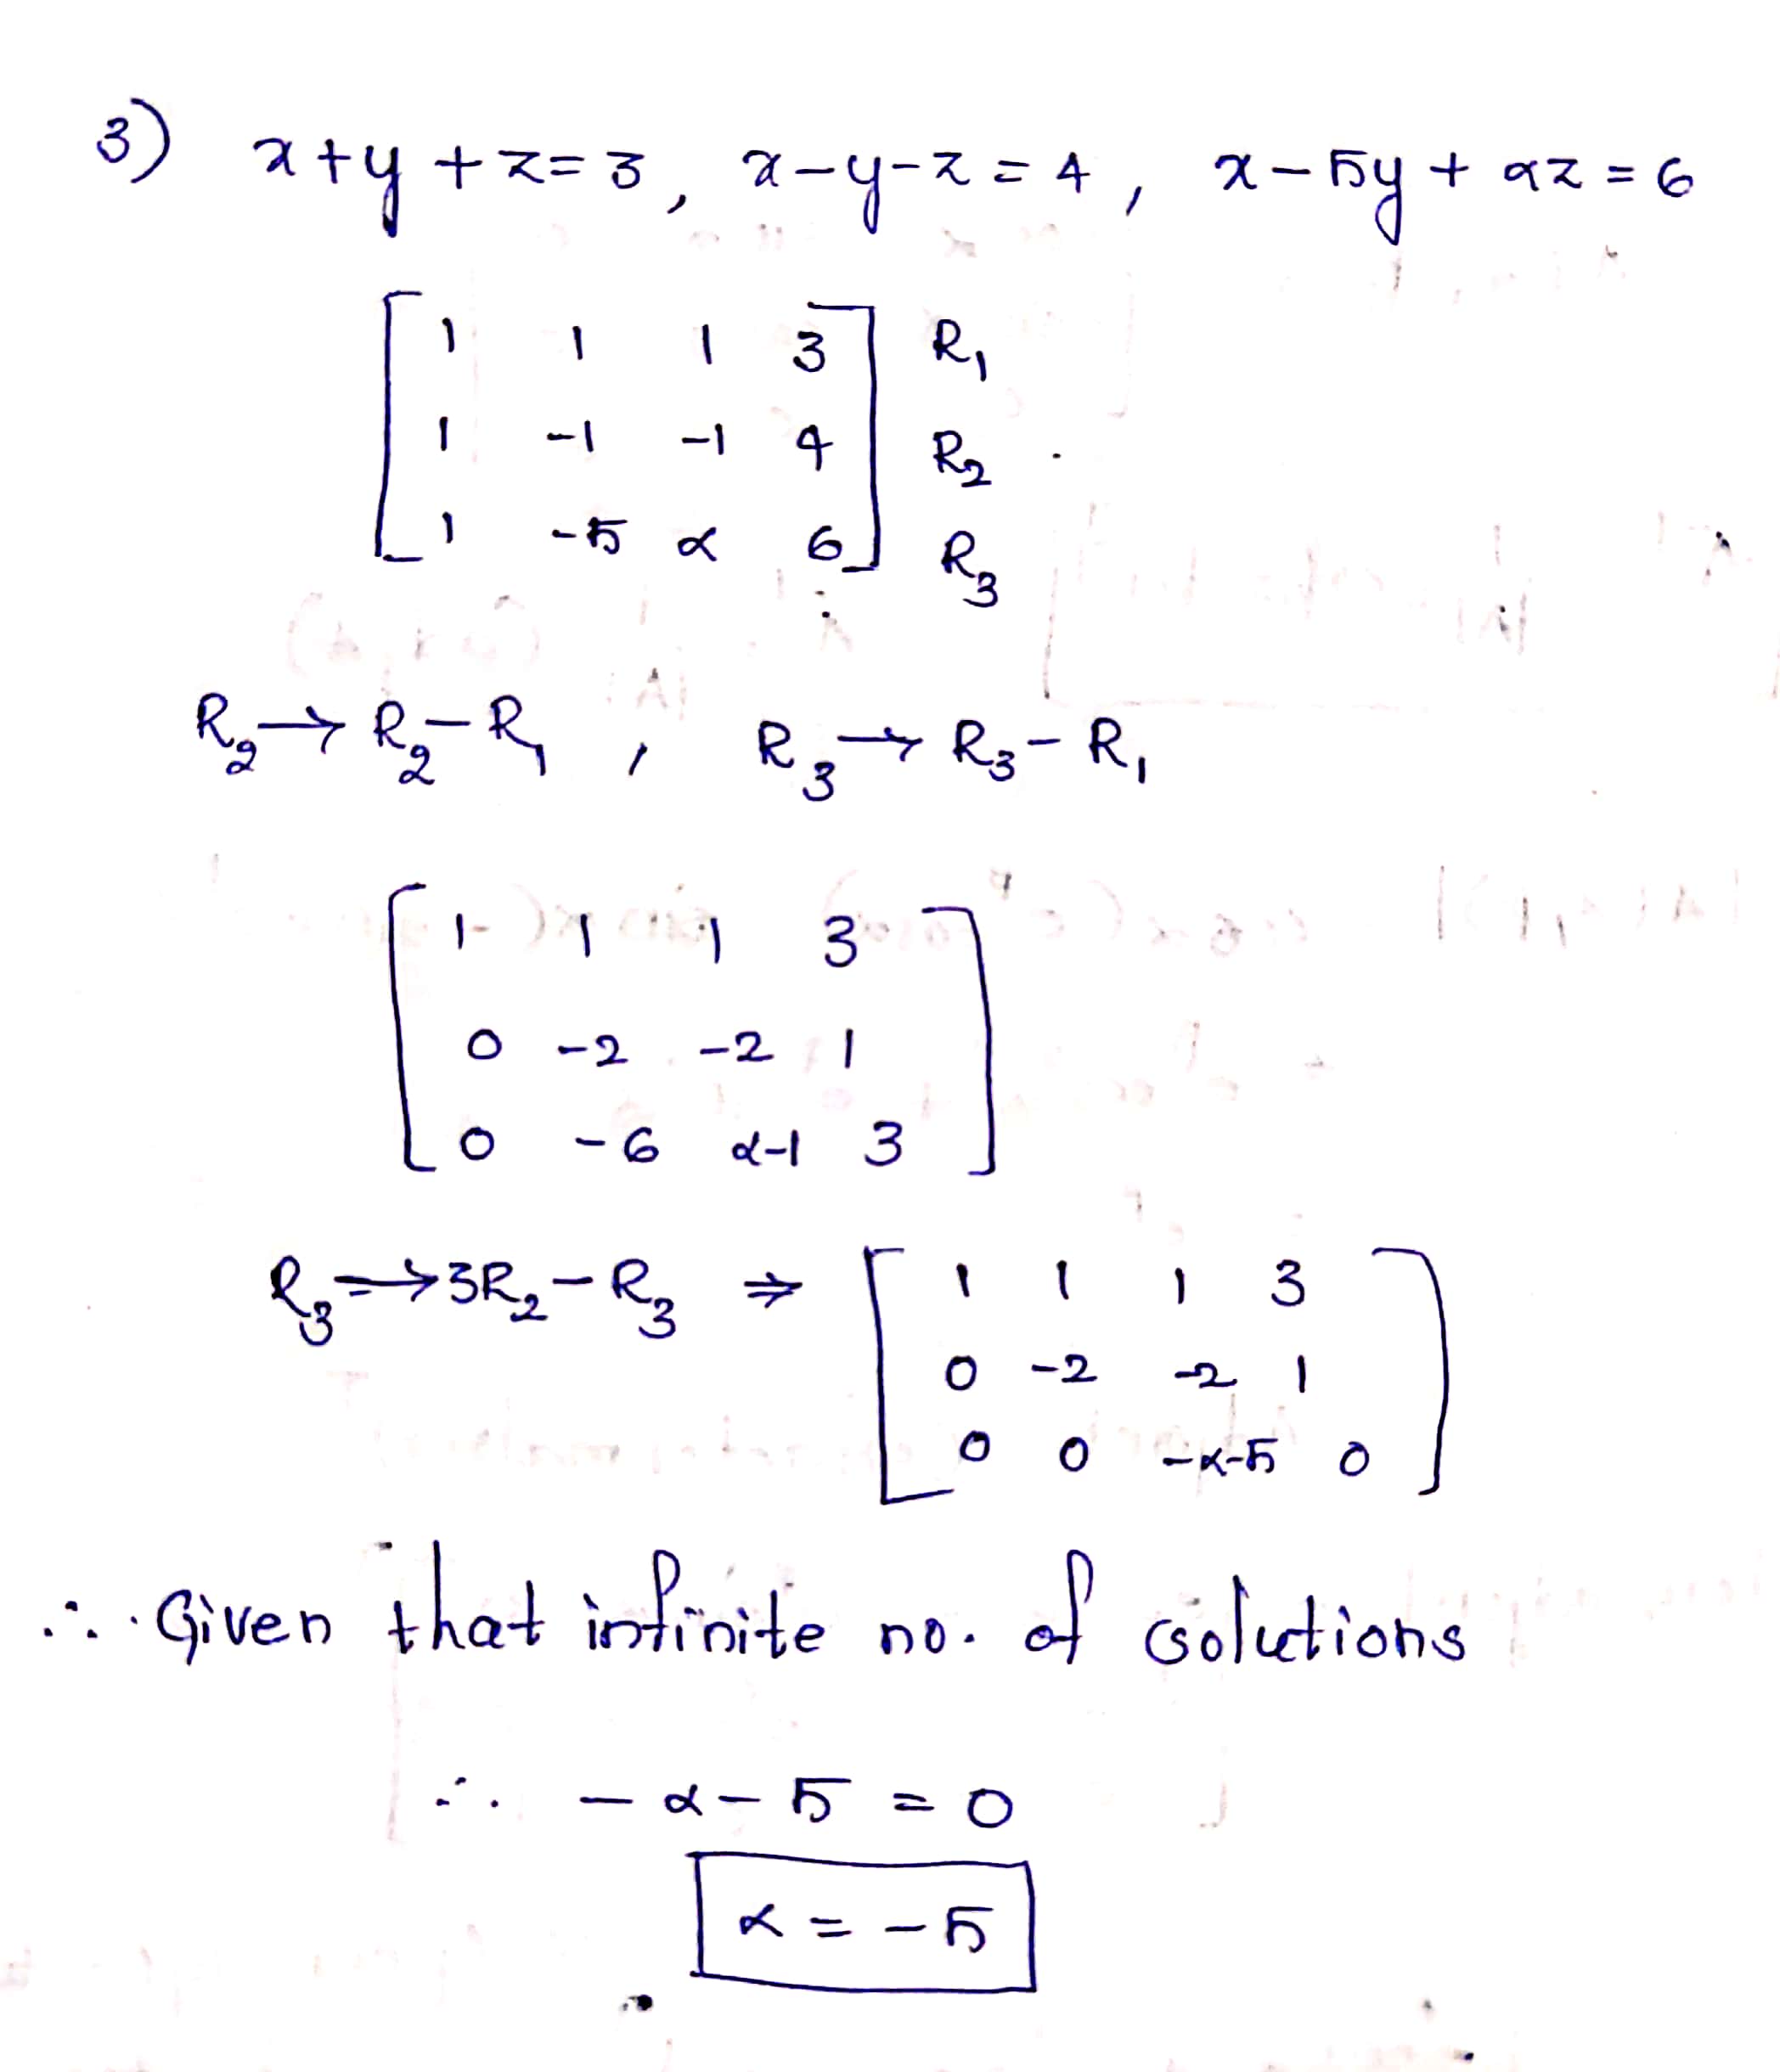 3) x+y+z=3, x-y-z=4, x-5y+αz=6
1 1 1 3 R₁
1 -1 -1 4 R₂
1 -5 α 6 R₃
R₂→R₂-R₁, R₃→R₃-R₁
1 1 1 3
0 -2 -2 1
0 -6 α-1 3
R₃→3R₂-R₃ ⇒ 1 1 1 3
0 -2 -2 1
0 0 -α-5 0
∴ Given that infinite no. of solutions
∴ -α-5=0
α=-5